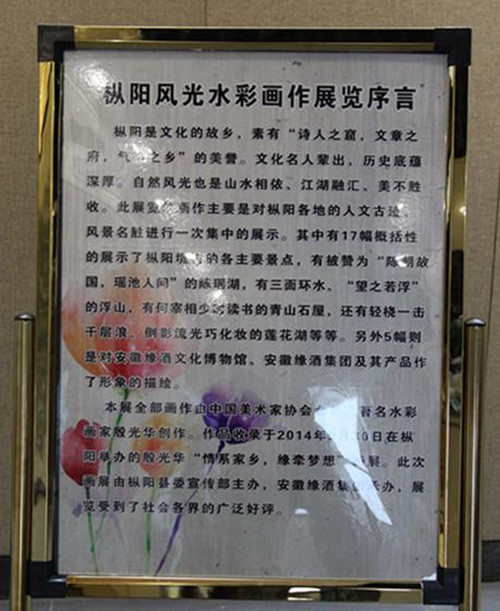 枞阳风光水彩画作展览序言
枞阳是文化的故乡,素有“诗人之窟,文章之
府,气 之乡”的美誉。文化名人辈出,历史底蕴
深厚。自然风光也是山水相依、江湖融汇、美不胜
收。此展览 画作主要是对枞阳各地的人文古迹、
风景名胜进行一次集中的展示。其中有17幅概括性
的展示了枞阳境内的各主要景点,有被赞为“陈朝故
国,瑶池人间”的陈瑶湖,有三面环水、“望之若浮”
的浮山,有何宰相少时读书的青山石屋,还有轻桡一击
千层浪、倒影流光巧化妆的莲花湖等等。另外5幅则
是对安徽缘酒文化博物馆、安徽缘酒集团及其产品作
了形象的描绘。
本展全部画作由中国美术家协会 著名水彩
画家殷光华创作。作品收录于2014年 30日在枞
阳举办的殷光华“情系家乡,缘牵梦想” 展。此次
画展由枞阳县委宣传部主办,安徽缘酒集团承办,展
览受到了社会各界的广泛好评。